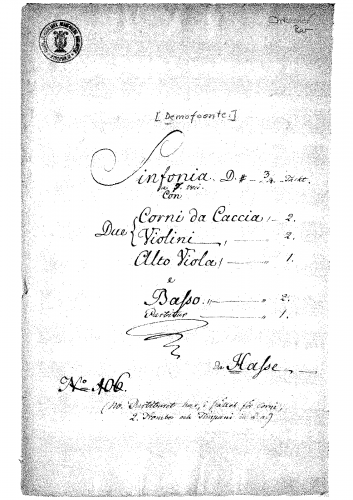 [Demofoonte.]
Sinfonia. D.# – 3/4 – Takt.
Con
Due { Corni da Caccia, – 2.
Violini – „ – 2.
Alto Viola, – „ – 1.
e
Basso. „ – „ 2.
Partitur – „ 1.
da Hasse
No. 106.
(No. Partituret har, i stället för Corni,
2. Trombe och Timpani in D.#.)